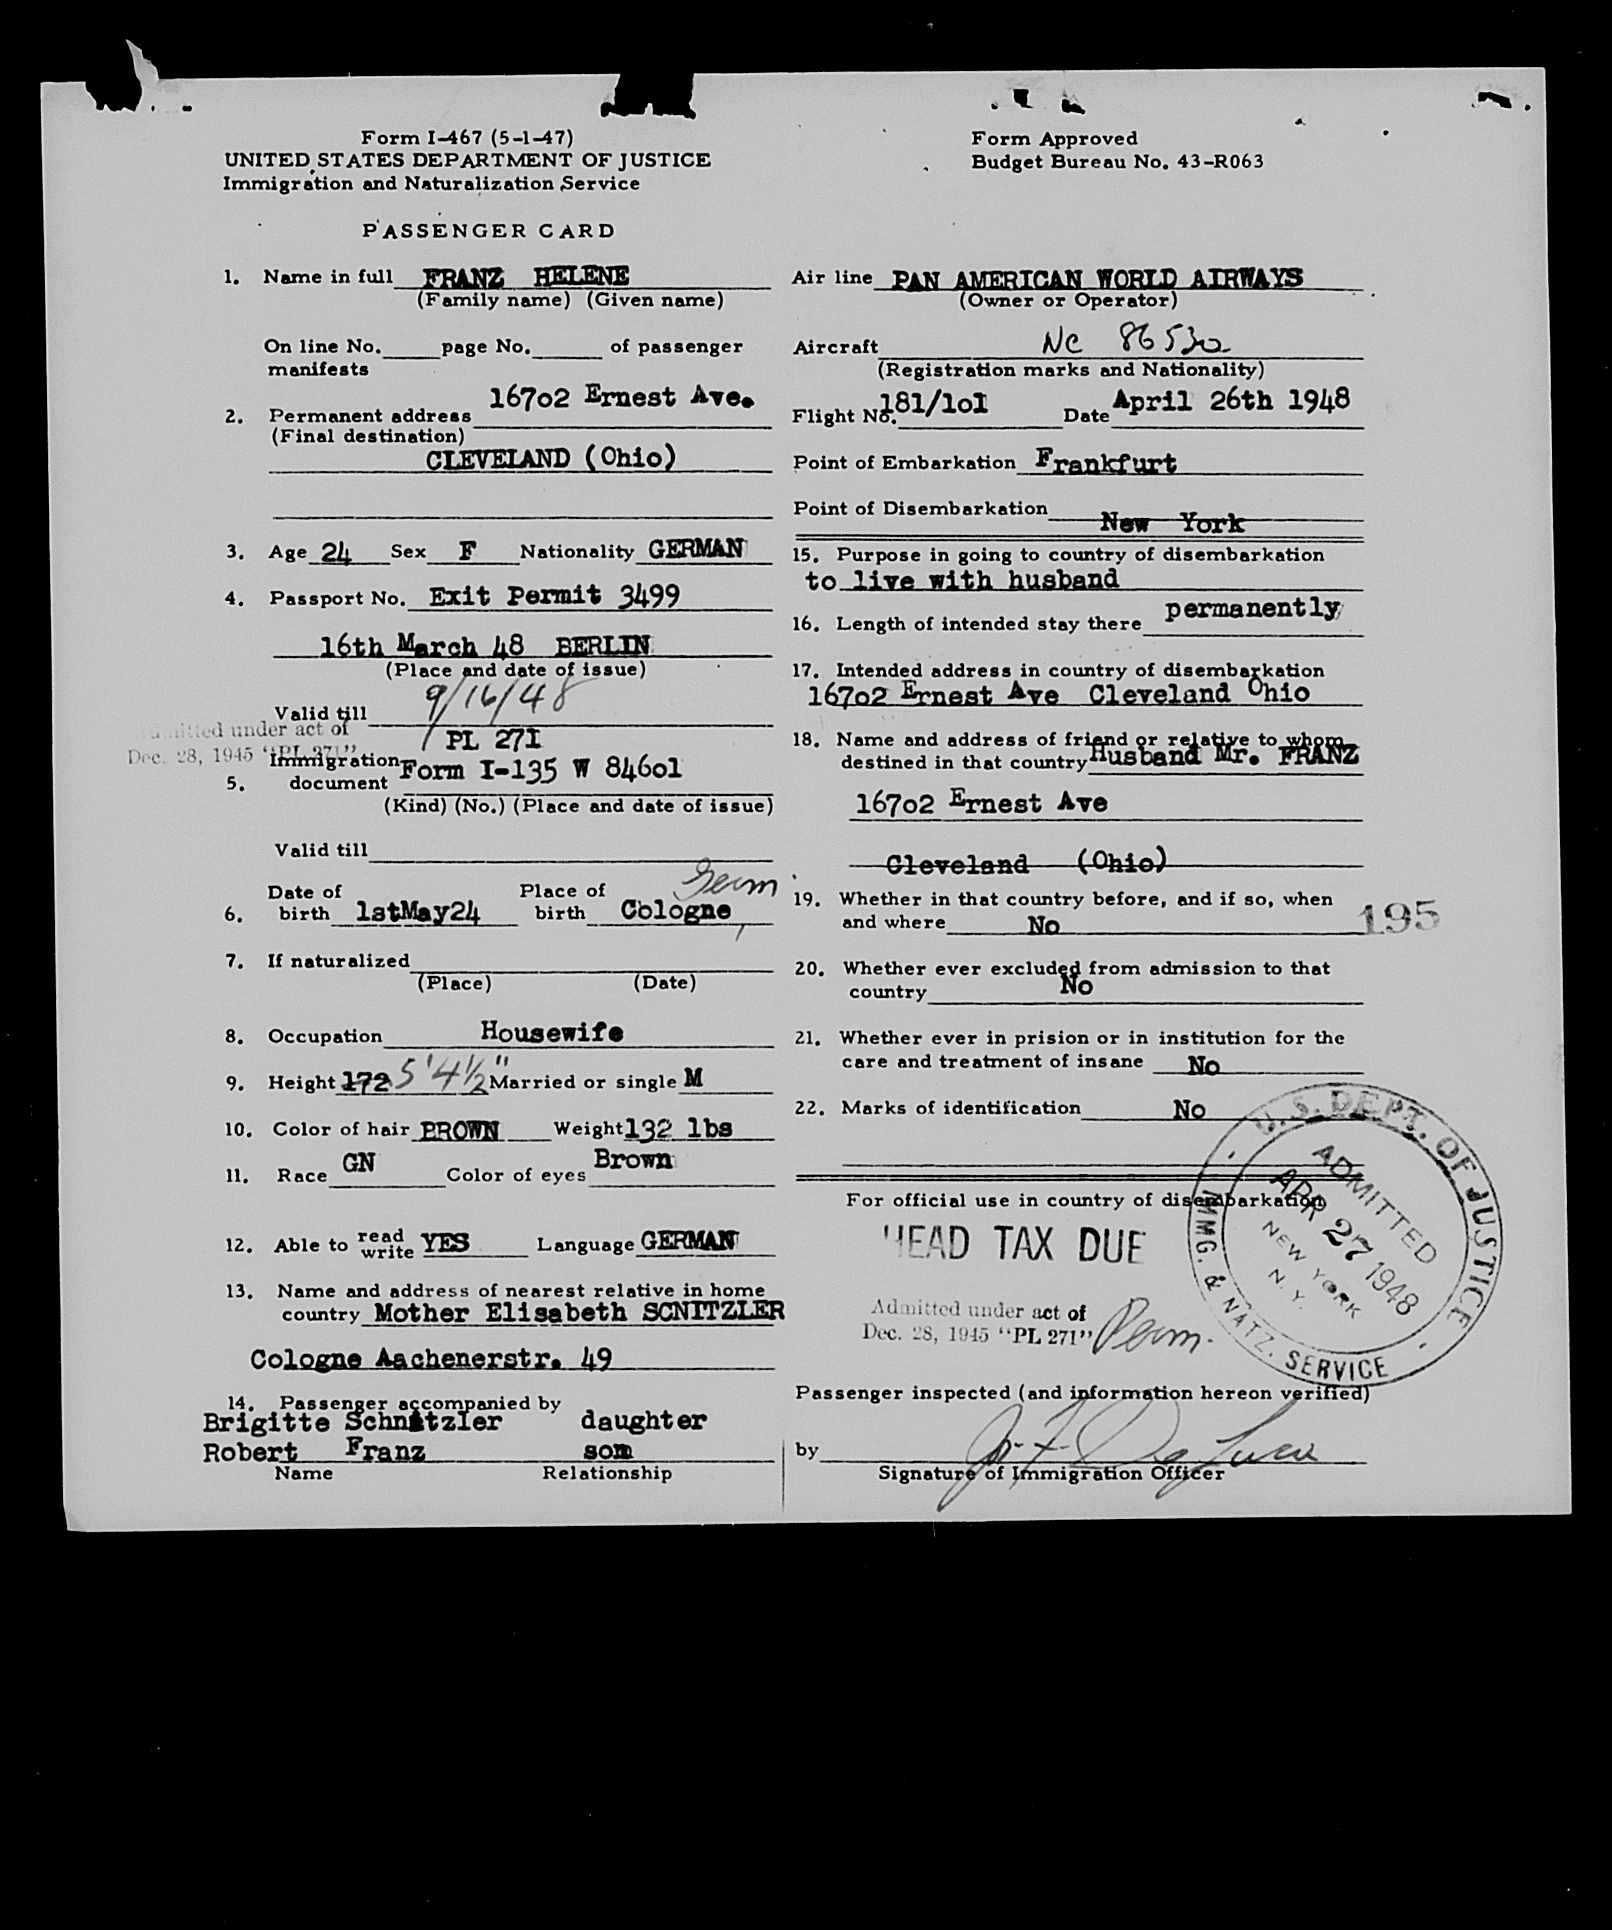 Form I-467 (5-1-47)
UNITED STATES DEPARTMENT OF JUSTICE
Immigration and Naturalization Service
PASSENGER CARD
1. Name in full FRANZ HELENE
(Family name) (Given name)
On line No. page No. of passenger
manifests
16702 Ernest Ave.
2. Permanent address
(Final destination)
CLEVELAND (Ohio)
3. Age 24 Sex F Nationality GERMAN
4. Passport No. Exit Permit 3499
16th March 48 BERLIN
(Place and date of issue)
Valid till 9/16/48
Admitted under act of
Dec. 28, 1945 "PL 271"
PL 271
Immigration
5. document Form I-135 W 84601
(Kind) (No.) (Place and date of issue)
Valid till
Germ
Date of Place of
6. birth 1stMay24 birth Cologne,
7. If naturalized
(Place) (Date)
8. Occupation Housewife
9. Height 172 5'4½" Married or single M
10. Color of hair BROWN Weight 132 lbs
11. Race GN Color of eyes Brown
12. Able to read write YES Language GERMAN
13. Name and address of nearest relative in home
country Mother Elisabeth SCNITZLER
Cologne Aachenerstr. 49
14. Passenger accompanied by
Brigitte Schnitzler daughter
Robert Franz son
Name Relationship
Form Approved
Budget Bureau No. 43-R063
Air line PAN AMERICAN WORLD AIRWAYS
(Owner or Operator)
Aircraft NC 86530
(Registration marks and Nationality)
Flight No. 181/101 Date April 26th 1948
Point of Embarkation Frankfurt
Point of Disembarkation New York
15. Purpose in going to country of disembarkation
to live with husband
16. Length of intended stay there permanently
17. Intended address in country of disembarkation
16702 Ernest Ave Cleveland Ohio
18. Name and address of friend or relative to whom
destined in that country Husband Mr. FRANZ
16702 Ernest Ave
Cleveland (Ohio)
19. Whether in that country before, and if so, when
and where No
195
20. Whether ever excluded from admission to that
country No
21. Whether ever in prision or in institution for the
care and treatment of insane No
22. Marks of identification No
For official use in country of disembarkation
HEAD TAX DUE
Admitted under act of
Dec. 28, 1945 "PL 271" Perm.
U. S. DEPT. OF JUSTICE
IMMG. & NATZ. SERVICE
ADMITTED
APR 27 1948
NEW YORK
N. Y.
Passenger inspected (and information hereon verified)
by
Signature of Immigration Officer